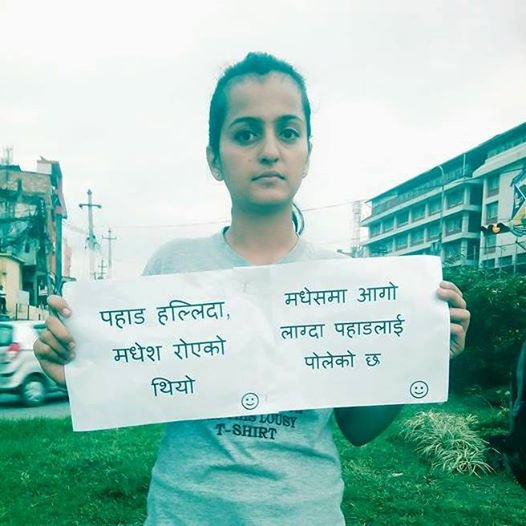 पहाड हल्लिदा,
मधेश रोएको
थियो
मधेसमा आगो
लाग्दा पहाडलाई
पोलेको छ
LOUSY
T-SHIRT